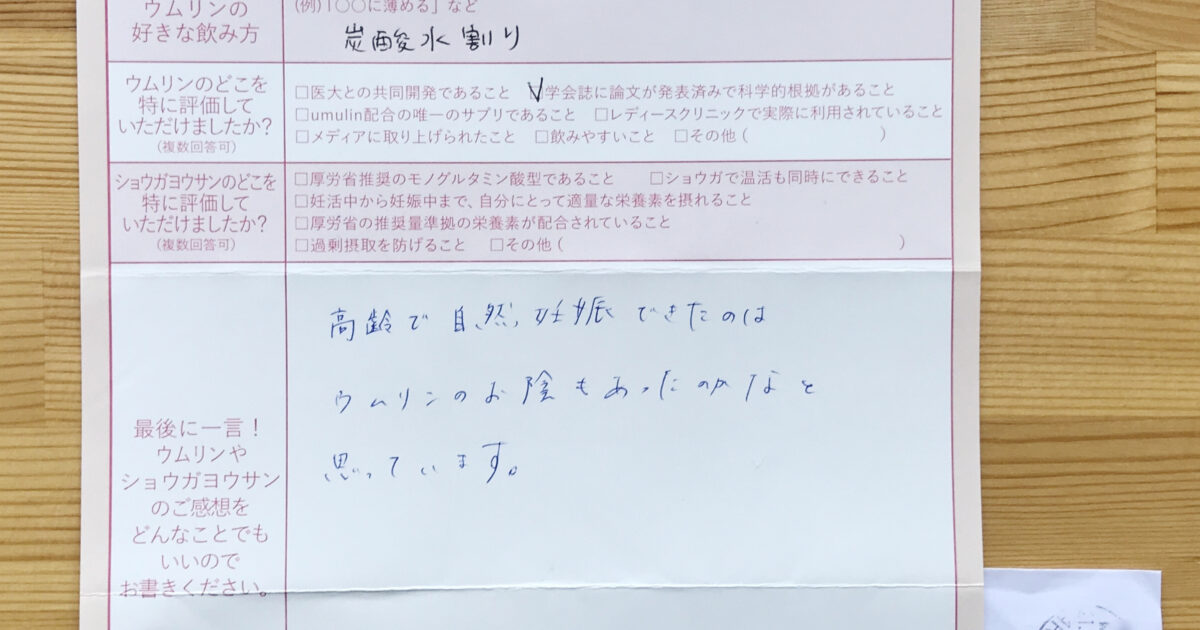 ウムリンの
好きな飲み方
(例)「〇〇に薄める」など
炭酸水割り
ウムリンのどこを
特に評価して
いただけましたか？
(複数回答可)
□医大との共同開発であること □学会誌に論文が発表済みで科学的根拠があること
□umulin配合の唯一のサプリであること □レディースクリニックで実際に利用されていること
□メディアに取り上げられたこと □飲みやすいこと □その他（ ）
ショウガヨウサンのどこを
特に評価して
いただけましたか？
(複数回答可)
□厚労省推奨のモノグルタミン酸型であること □ショウガで温活も同時にできること
□妊活中から妊娠中まで、自分にとって適量な栄養素を摂れること
□厚労省の推奨量準拠の栄養素が配合されていること
□過剰摂取を防げること □その他（ ）
最後に一言！
ウムリンや
ショウガヨウサン
のご感想を
どんなことでも
いいので
お書きください。
高齢で自然妊娠できたのは
ウムリンのお陰もあったのかなと
思っています。